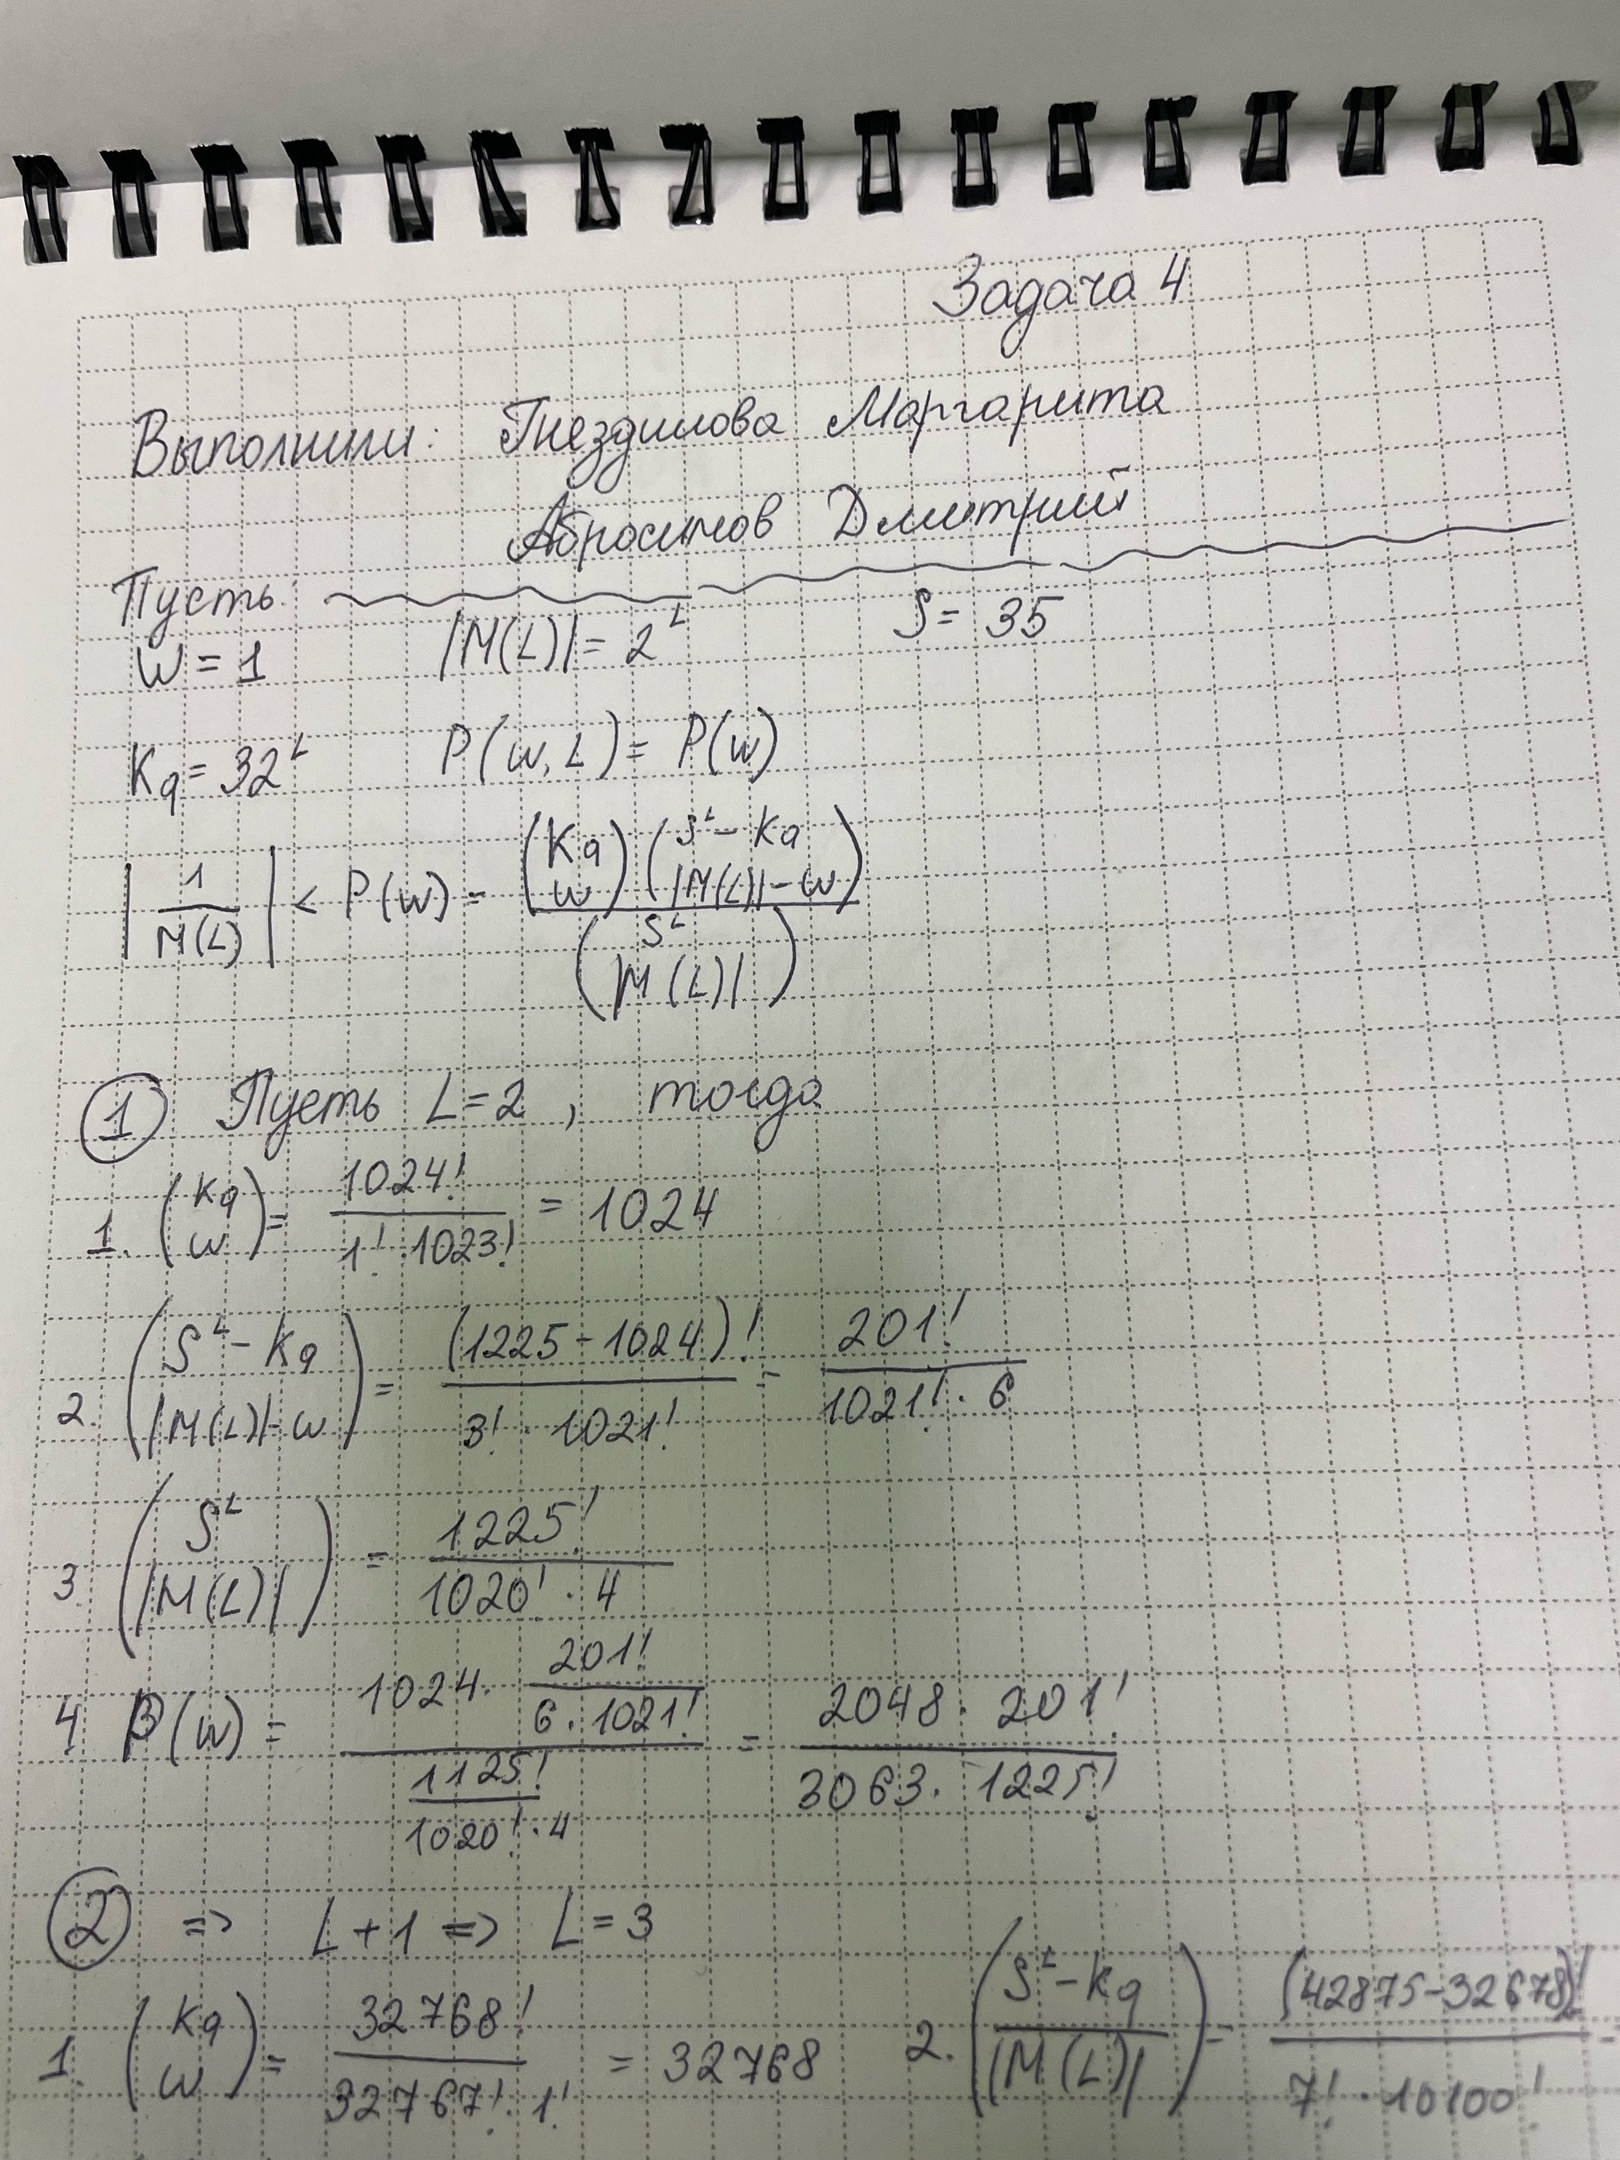 Задача 4
Выполнили: Гнездилова Маргарита
Абросимов Дмитрий
Пусть:
W = 1 |M(L)| = 2^L S = 35
Kq = 32^L P(W, L) = P(W)
|1/M(L)| < P(W) = (Kq W) (S^L - Kq |M(L)| - W) / (S^L |M(L)|)
① Пусть L = 2, тогда
1. (Kq W) = 1024! / 1! · 1023! = 1024
2. (S^L - Kq |M(L)| - W) = (1225 - 1024)! / 3! · 1021! = 201! / 1021! · 6
3. (S^L |M(L)|) = 1225! / 1020! · 4
4 P(W) = 1024 · 201! / 6 · 1021! / 1125! / 1020! · 4 = 2048 · 201! / 3063 · 1225!
② => L + 1 => L = 3
1. (Kq W) = 32768! / 32767! · 1! = 32768 2. (S^L - Kq / |M(L)|) = (42875 - 32678)! / 7! · 10100! =